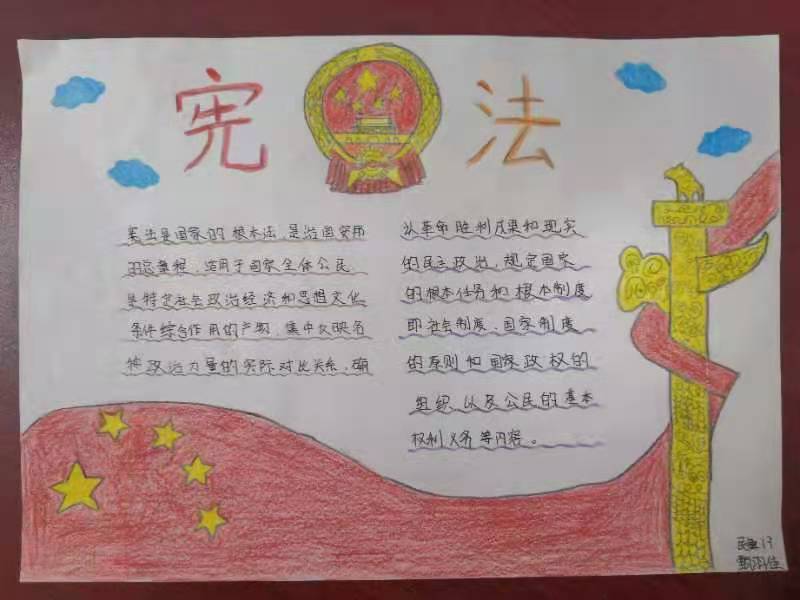 宪法
宪法是国家的根本法,是治国安邦
的总章程,适用于国家全体公民
是特定社会政治经济和思想文化
条件综合作用的产物,集中反映各
种政治力量的实际对比关系,确
认革命胜利成果和现实
的民主政治,规定国家
的根本任务和根本制度
即社会制度、国家制度
的原则和国家政权的
组织以及公民的基本
权利义务等内容。
13